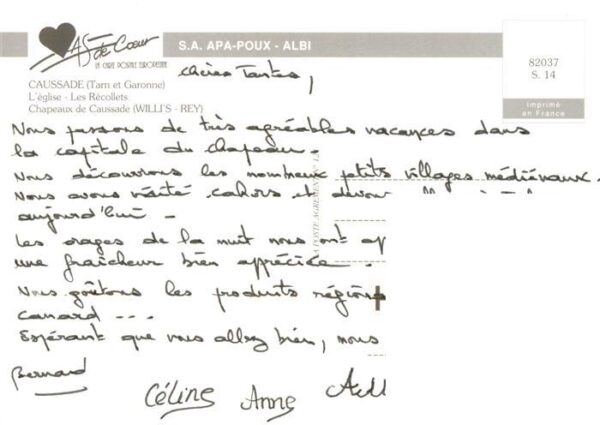 As de Cœur
LA CARTE POSTALE EUROPEENNE
S.A. APA-POUX - ALBI
82037
S. 14
Imprimé
en France
CAUSSADE (Tarn et Garonne)
L'église - Les Récollets
Chapeaux de Caussade (WILLI'S - REY)
LA POSTE AGREMENT N°
Chères Tantes,
Nous passons de très agréables vacances dans
la capitale du chapeau.
Nous découvrons les nombreux petits villages médiévaux.
Nous avons visité Cahors et
aujourd'hui -
Les orages de la nuit nous ont ap
une fraîcheur bien appréciée.
Nous goûtons les produits région
canard ...
Espérant que vous allez bien, nous
Bernard
Céline Anne